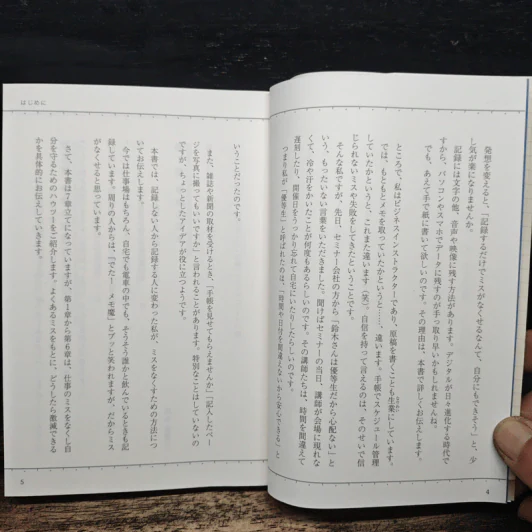 発想を変えると、「記録するだけでミスがなくせるなんて、自分にもできそう」と、少
し気が楽になりませんか。
記録には文字の他、音声や映像に残す方法があります。デジタルが日々進化する時代で
すから、パソコンやスマホでデータに残すのが手っ取り早いかもしれませんね。
でも、あえて手で紙に書いて欲しいのです。その理由は、本書で詳しくお伝えします。
ところで、私はビジネスインストラクターであり、原稿を書くことも生業にしています。
では、もともとメモを取っていたかというと……、違います。手帳でスケジュール管理
していたかというと、これまた違います（笑）。自信を持って言えるのは、そのせいで信
じられないミスや失敗をしてきたということです。
そんな私ですが、先日、セミナー会社の方から「鈴木さんは優等生だから心配ない」と
いう、もったいない言葉をいただきました。聞けばセミナーの当日、講師が会場に現れな
くて、冷や汗をかいたことが何度もあるらしいのです。その講師たちは、時間を間違えて
遅刻したり、開催日をうっかり忘れて自宅にいたりしたらしいのです。
つまり私が「優等生」と呼ばれたのは、「時間や日付を間違えないから安心できる」と
4
はじめに
いうことだったのです。
また、雑誌や新聞の取材を受けるとき、「手帳を見せてもらえませんか」「記入したペー
ジを写真に撮ってもいいですか」と言われることがあります。特別なことはしていないの
ですが、ちょっとしたアイデアが役に立つようです。
本書では、記録しない人から記録する人に変わった私が、ミスをなくすための方法につ
いてお伝えします。
今では仕事場はもちろん、自宅でも電車の中でも、そうそう誰かと飲んでいるときも記
録しています。周りの人からは、「でたー メモ魔」とプッと笑われますが、だからミス
がなくせると思っています。
さて、本書は7章立てになっていますが、第1章から第6章は、仕事のミスをなくし自
分を守るためのハウツーをご紹介します。よくあるミスをもとに、どうしたら激減できる
かを具体的にお伝えしていきます。
5